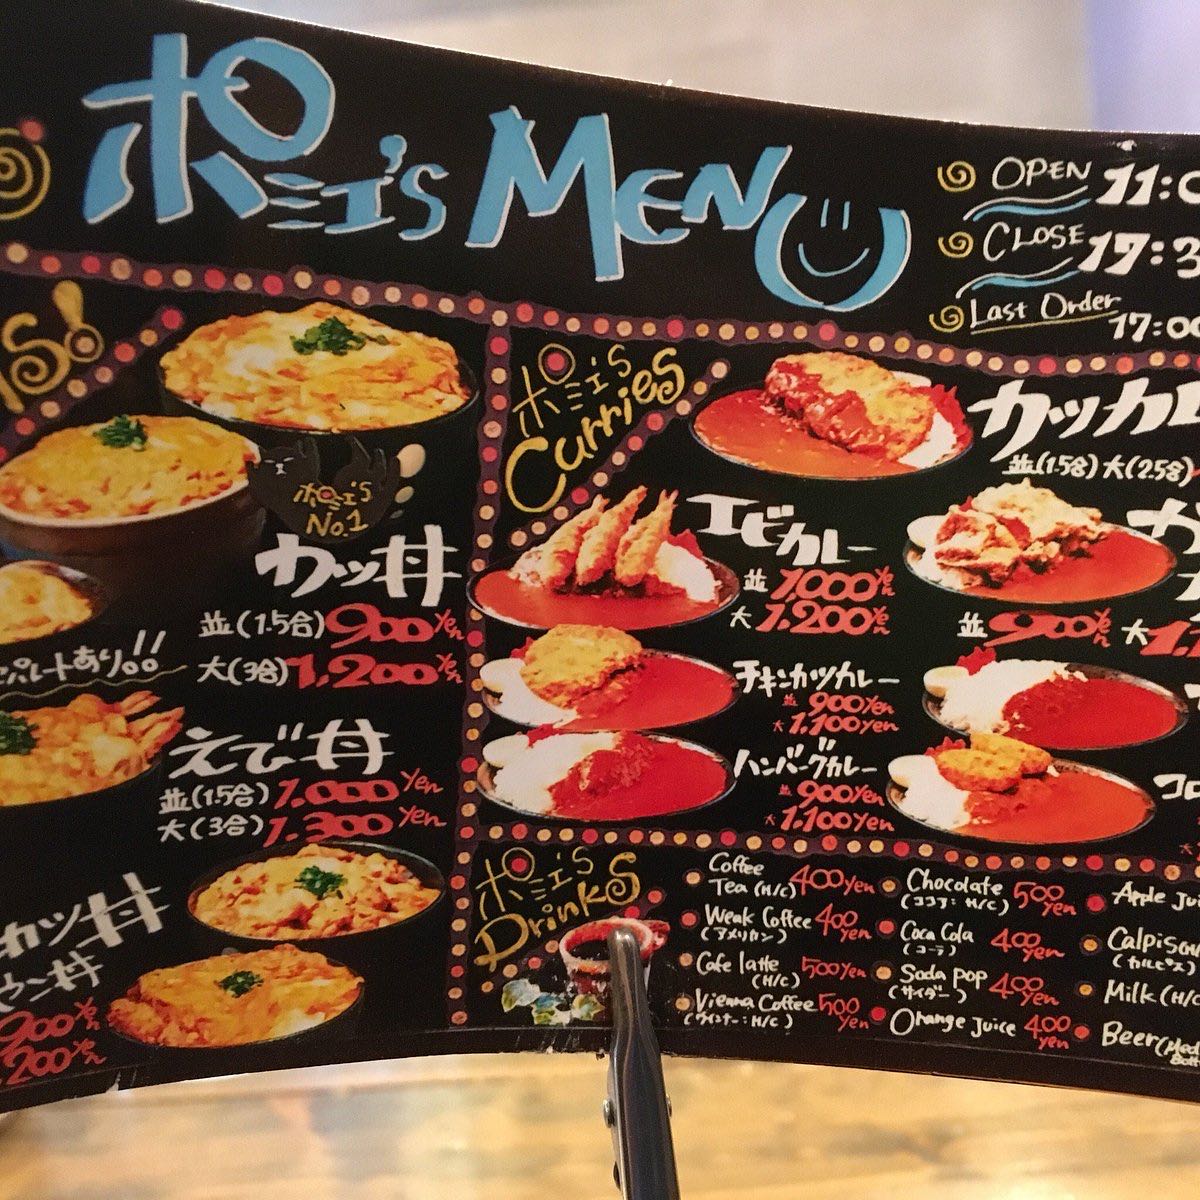 ポミエ's MENU
OPEN 11:0
CLOSE 17:3
Last Order
17:00
s!
ポミエ's
No.1
カツ丼
並(1.5合) 900yen
大(3合) 1,200yen
セパレートあり!!
えび丼
並(1.5合) 1,000yen
大(3合) 1,300yen
カツ丼
ン丼
900yen
,200yen
ポミエ's
Curries
カツカレ
並(1.5合) 大(2.5合)
エビカレー
並 1,000yen
大 1,200yen
カ
並 900yen 大 1,1
チキンカツカレー
並 900yen
大 1,100yen
ハンバーグカレー
並 900yen
大 1,100yen
コロ
ポミエ's
Drinks
Coffee
Tea (H/C) 400yen
Weak Coffee 400yen
(アメリカン)
Cafe latte 500yen
(H/C)
Vienna Coffee 500yen
(ウィンナー:H/C)
Chocolate 500yen
(ココア:H/C)
Coca Cola 400yen
(コーラ)
Soda pop 400yen
(サイダー)
Orange Juice 400yen
Apple Jui
Calpis
(カルピス)
Milk (H/C
Beer (Med
Bott